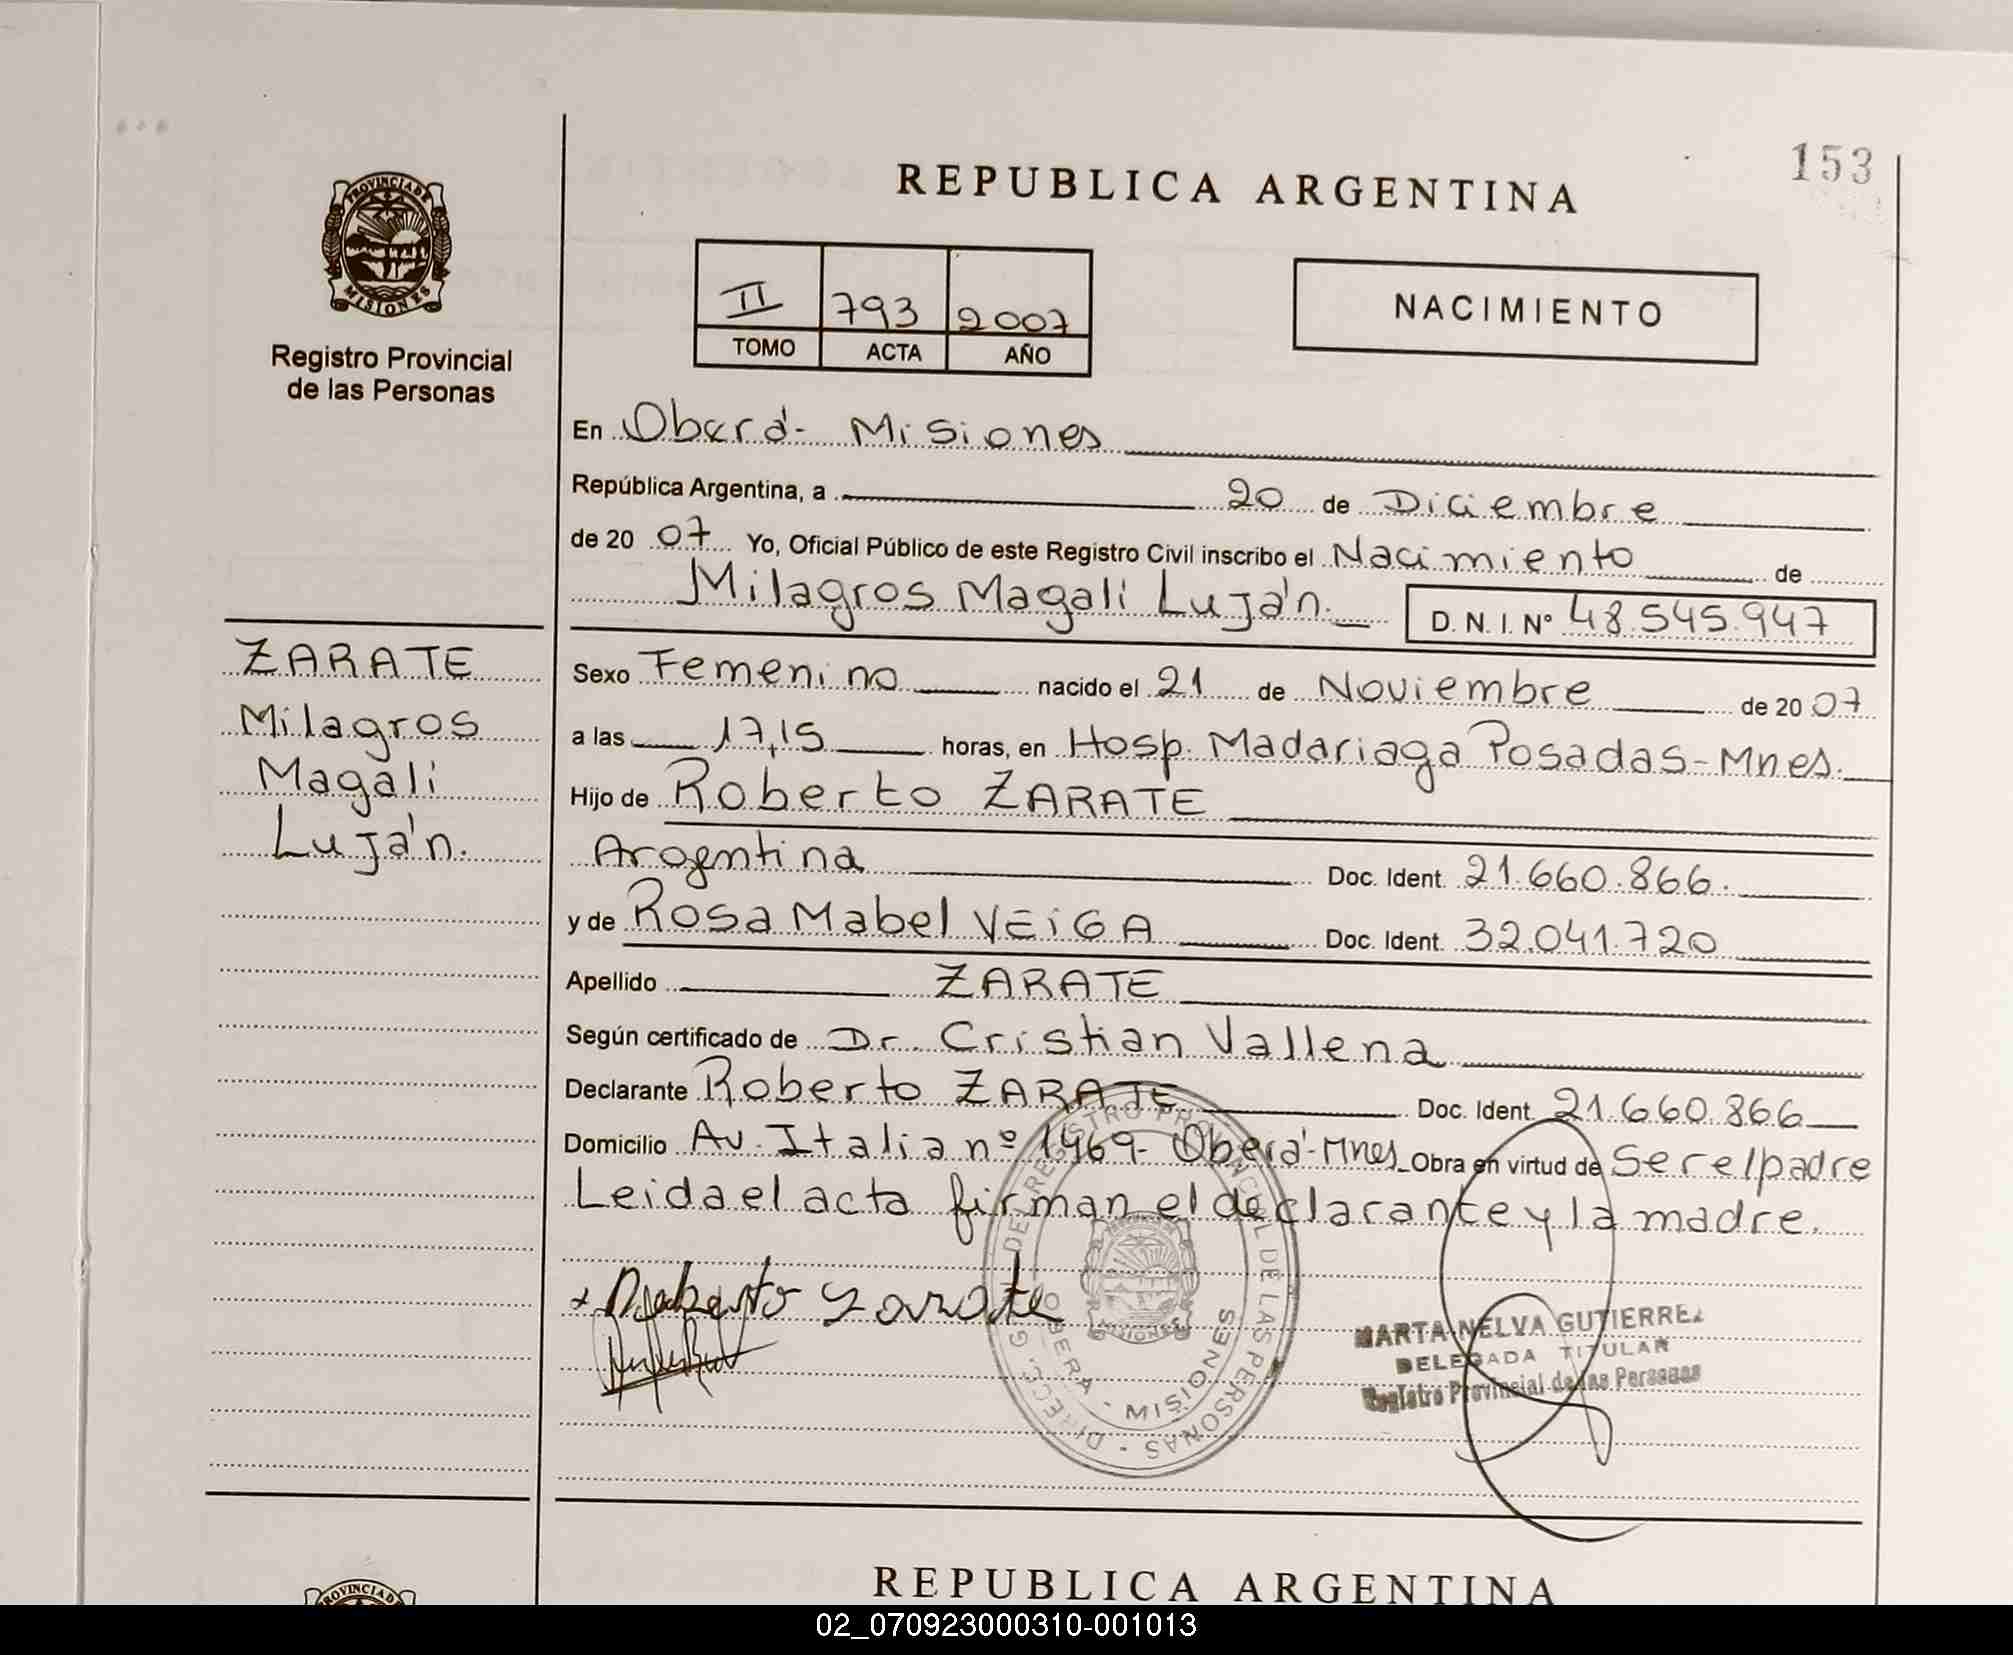 153
PROVINCIA DE
MISIONES
Registro Provincial
de las Personas
REPUBLICA ARGENTINA
II 793 2007
TOMO ACTA AÑO
NACIMIENTO
En Oberá - Misiones
República Argentina, a 20 de Diciembre
de 20 07 Yo, Oficial Público de este Registro Civil inscribo el Nacimiento de
Milagros Magalí Luján. D. N. I. Nº 48.545.947
ZARATE
Milagros
Magalí
Luján.
Sexo Femenino nacido el 21 de Noviembre de 20 07
a las 17,15 horas, en Hosp. Madariaga Posadas - Mnes.
Hijo de Roberto ZARATE
Argentina Doc. Ident. 21.660.866.
y de Rosa Mabel VEiGA Doc. Ident. 32.041.720
Apellido ZARATE
Según certificado de Dr. Cristian Vallena
Declarante Roberto ZARATE Doc. Ident. 21.660.866
Domicilio Av. Italia nº 1469 - Oberá - Mnes Obra en virtud de Ser el padre
Leida el acta firman el declarante y la madre.
DIRECC. G DEL REGISTRO PROVINCIAL DE LAS PERSONAS
OBERA - MISIONES
MISIONES
MARTA NELVA GUTIERREZ
DELEGADA TITULAR
Registro Provincial de las Personas
REPUBLICA ARGENTINA
PROVINCIA D
02_070923000310-001013